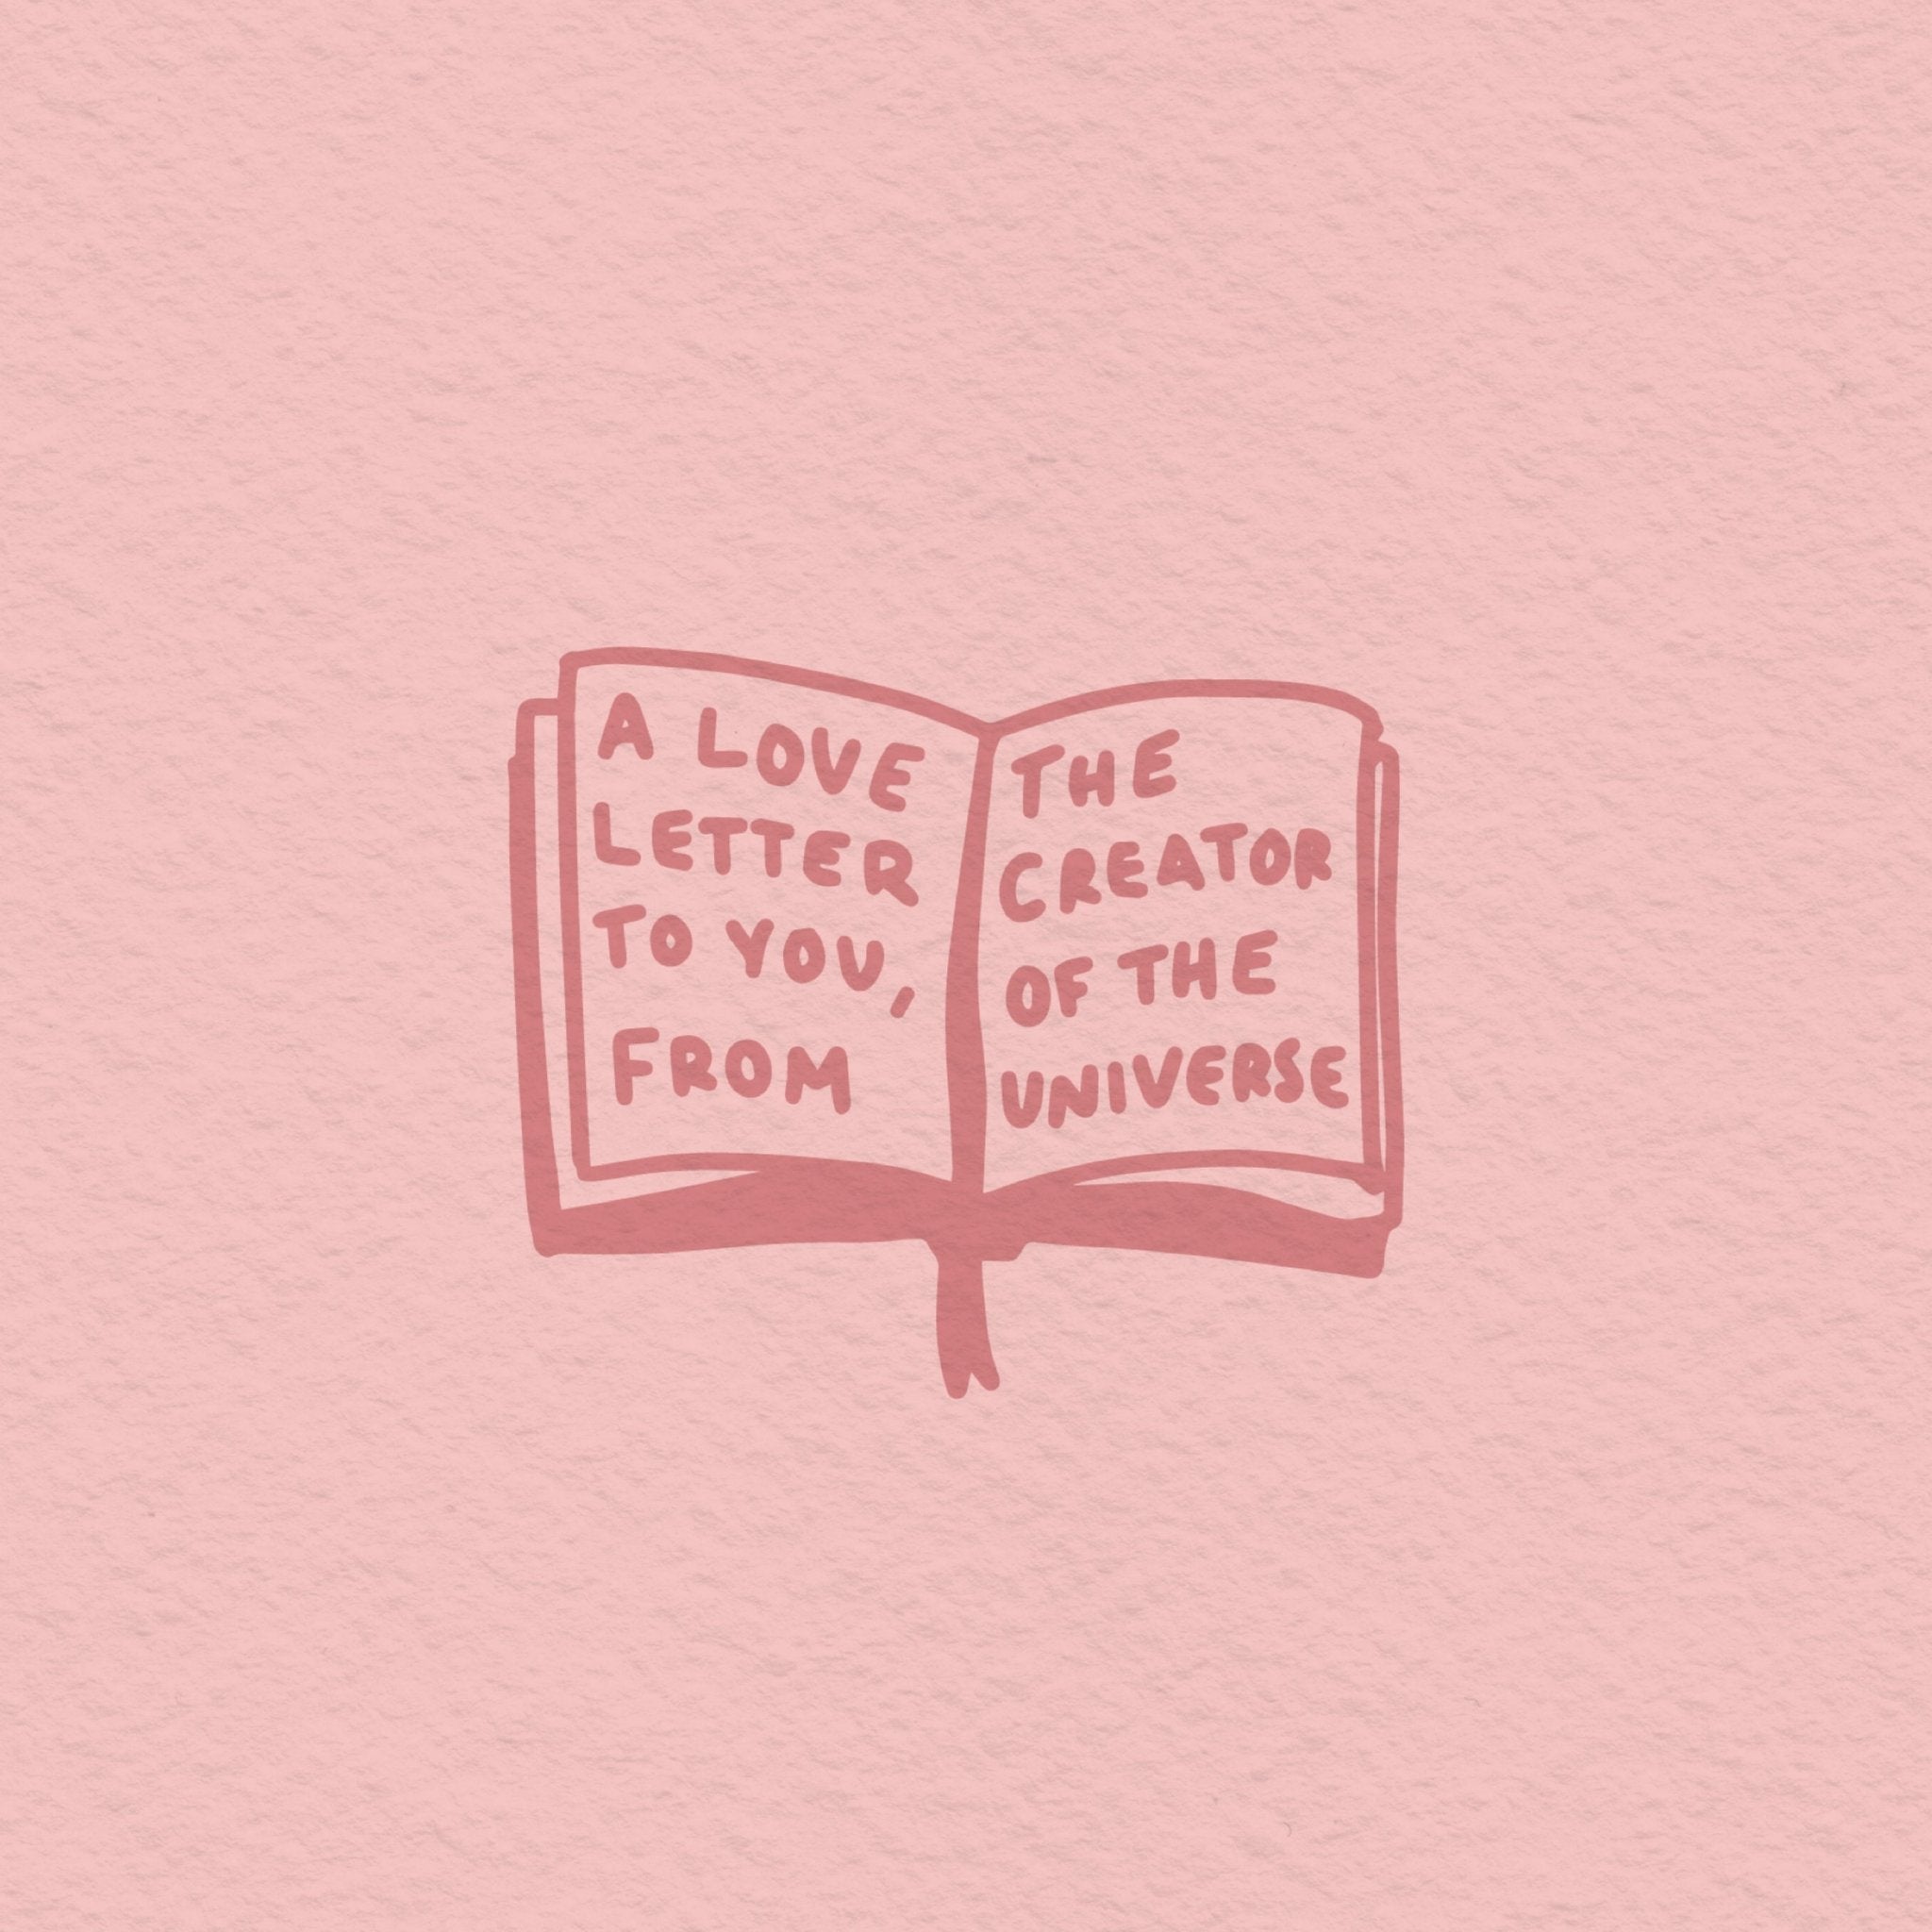 A LOVE
LETTER
TO YOU,
FROM
THE
CREATOR
OF THE
UNIVERSE